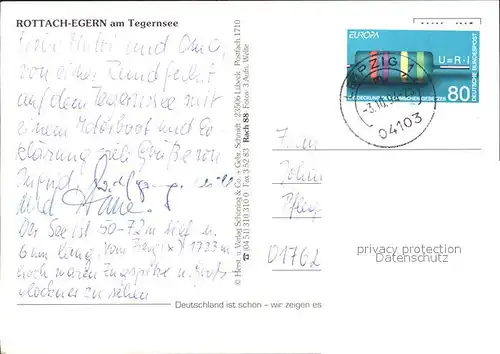 ROTTACH-EGERN am Tegernsee
Liebe Mutti und Oma,
von einer Rundfahrt
auf dem Tegernsee mit
einem Motorboot und Er-
klärung viele Grüße von
Ingrid
und
Der See ist 50-72 m tief u.
6 km lang, vom Berg (x) 1723 m
hoch waren Zugspitze u. Groß-
glockner zu sehen
© Herst. u. Verlag Schöning & Co. + Gebr. Schmidt 23506 Lübeck Postfach 1710
☎ (04 51) 310 310 0 Fax 3 52 83 Rach 88 Fotos: 3 Aufn.
EUROPA
U=R·I
DEUTSCHE BUNDESPOST
80
LEIPZIG 1
04103
01762
privacy protection
Datenschutz
Deutschland ist schön – wir zeigen es